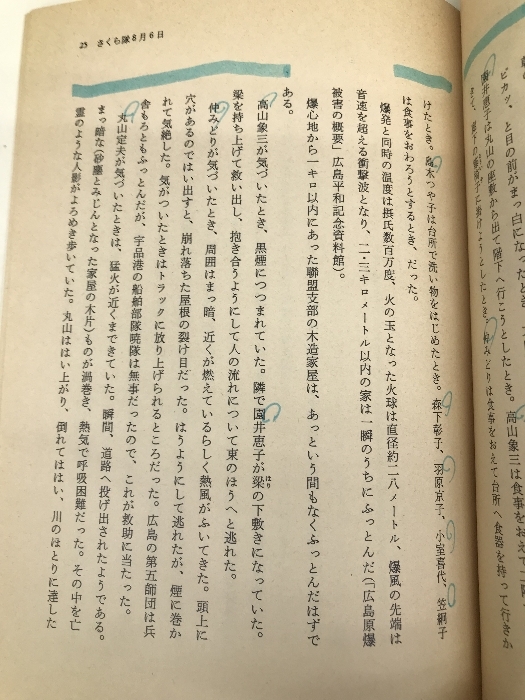 23 さくら隊8月6日
ピカッ、と目の前がまっ白になったとき
園井恵子は丸山の座敷から出て階下へ行こうとしたとき。高山象三は食事をおえて
仲みどりは食事をおえて台所へ食器を持って行きか
けたとき。島木つや子は台所で洗い物をはじめたとき。森下彰子、羽原京子、小室喜代、笠絅子
は食事をおわろうとするとき、だった。
爆発と同時の温度は摂氏数百万度、火の玉となった火球は直径約二八メートル、爆風の先端は
音速を超える衝撃波となり、二・三キロメートル以内の家は一瞬のうちにふっとんだ(「広島原爆
被害の概要」広島平和記念資料館)。
爆心地から一キロ以内にあった聯盟支部の木造家屋は、あっという間もなくふっとんだはずで
ある。
高山象三が気づいたとき、黒煙につつまれていた。隣で園井恵子が梁の下敷きになっていた。
はり
梁を持ち上げて救い出し、抱き合うようにして人の流れについて東のほうへと逃れた。
仲みどりが気づいたとき、周囲はまっ暗、近くが燃えているらしく熱風がふいてきた。頭上に
穴があるのではい出すと、崩れ落ちた屋根の裂け目だった。はうようにして逃れたが、煙に巻か
れて気絶した。気がついたときはトラックに放り上げられるところだった。広島の第五師団は兵
舎もろともふっとんだが、宇品港の船舶部隊暁隊は無事だったので、これが救助に当たった。
丸山定夫が気づいたときは、猛火が近くまできていた。瞬間、道路へ投げ出されたようである。
まっ暗な(砂塵とみじんとなった家屋の木片)ものが渦巻き、熱気で呼吸困難だった。その中を亡
霊のような人影がよろめき歩いていた。丸山ははい上がり、倒れてははい、川のほとりに達した